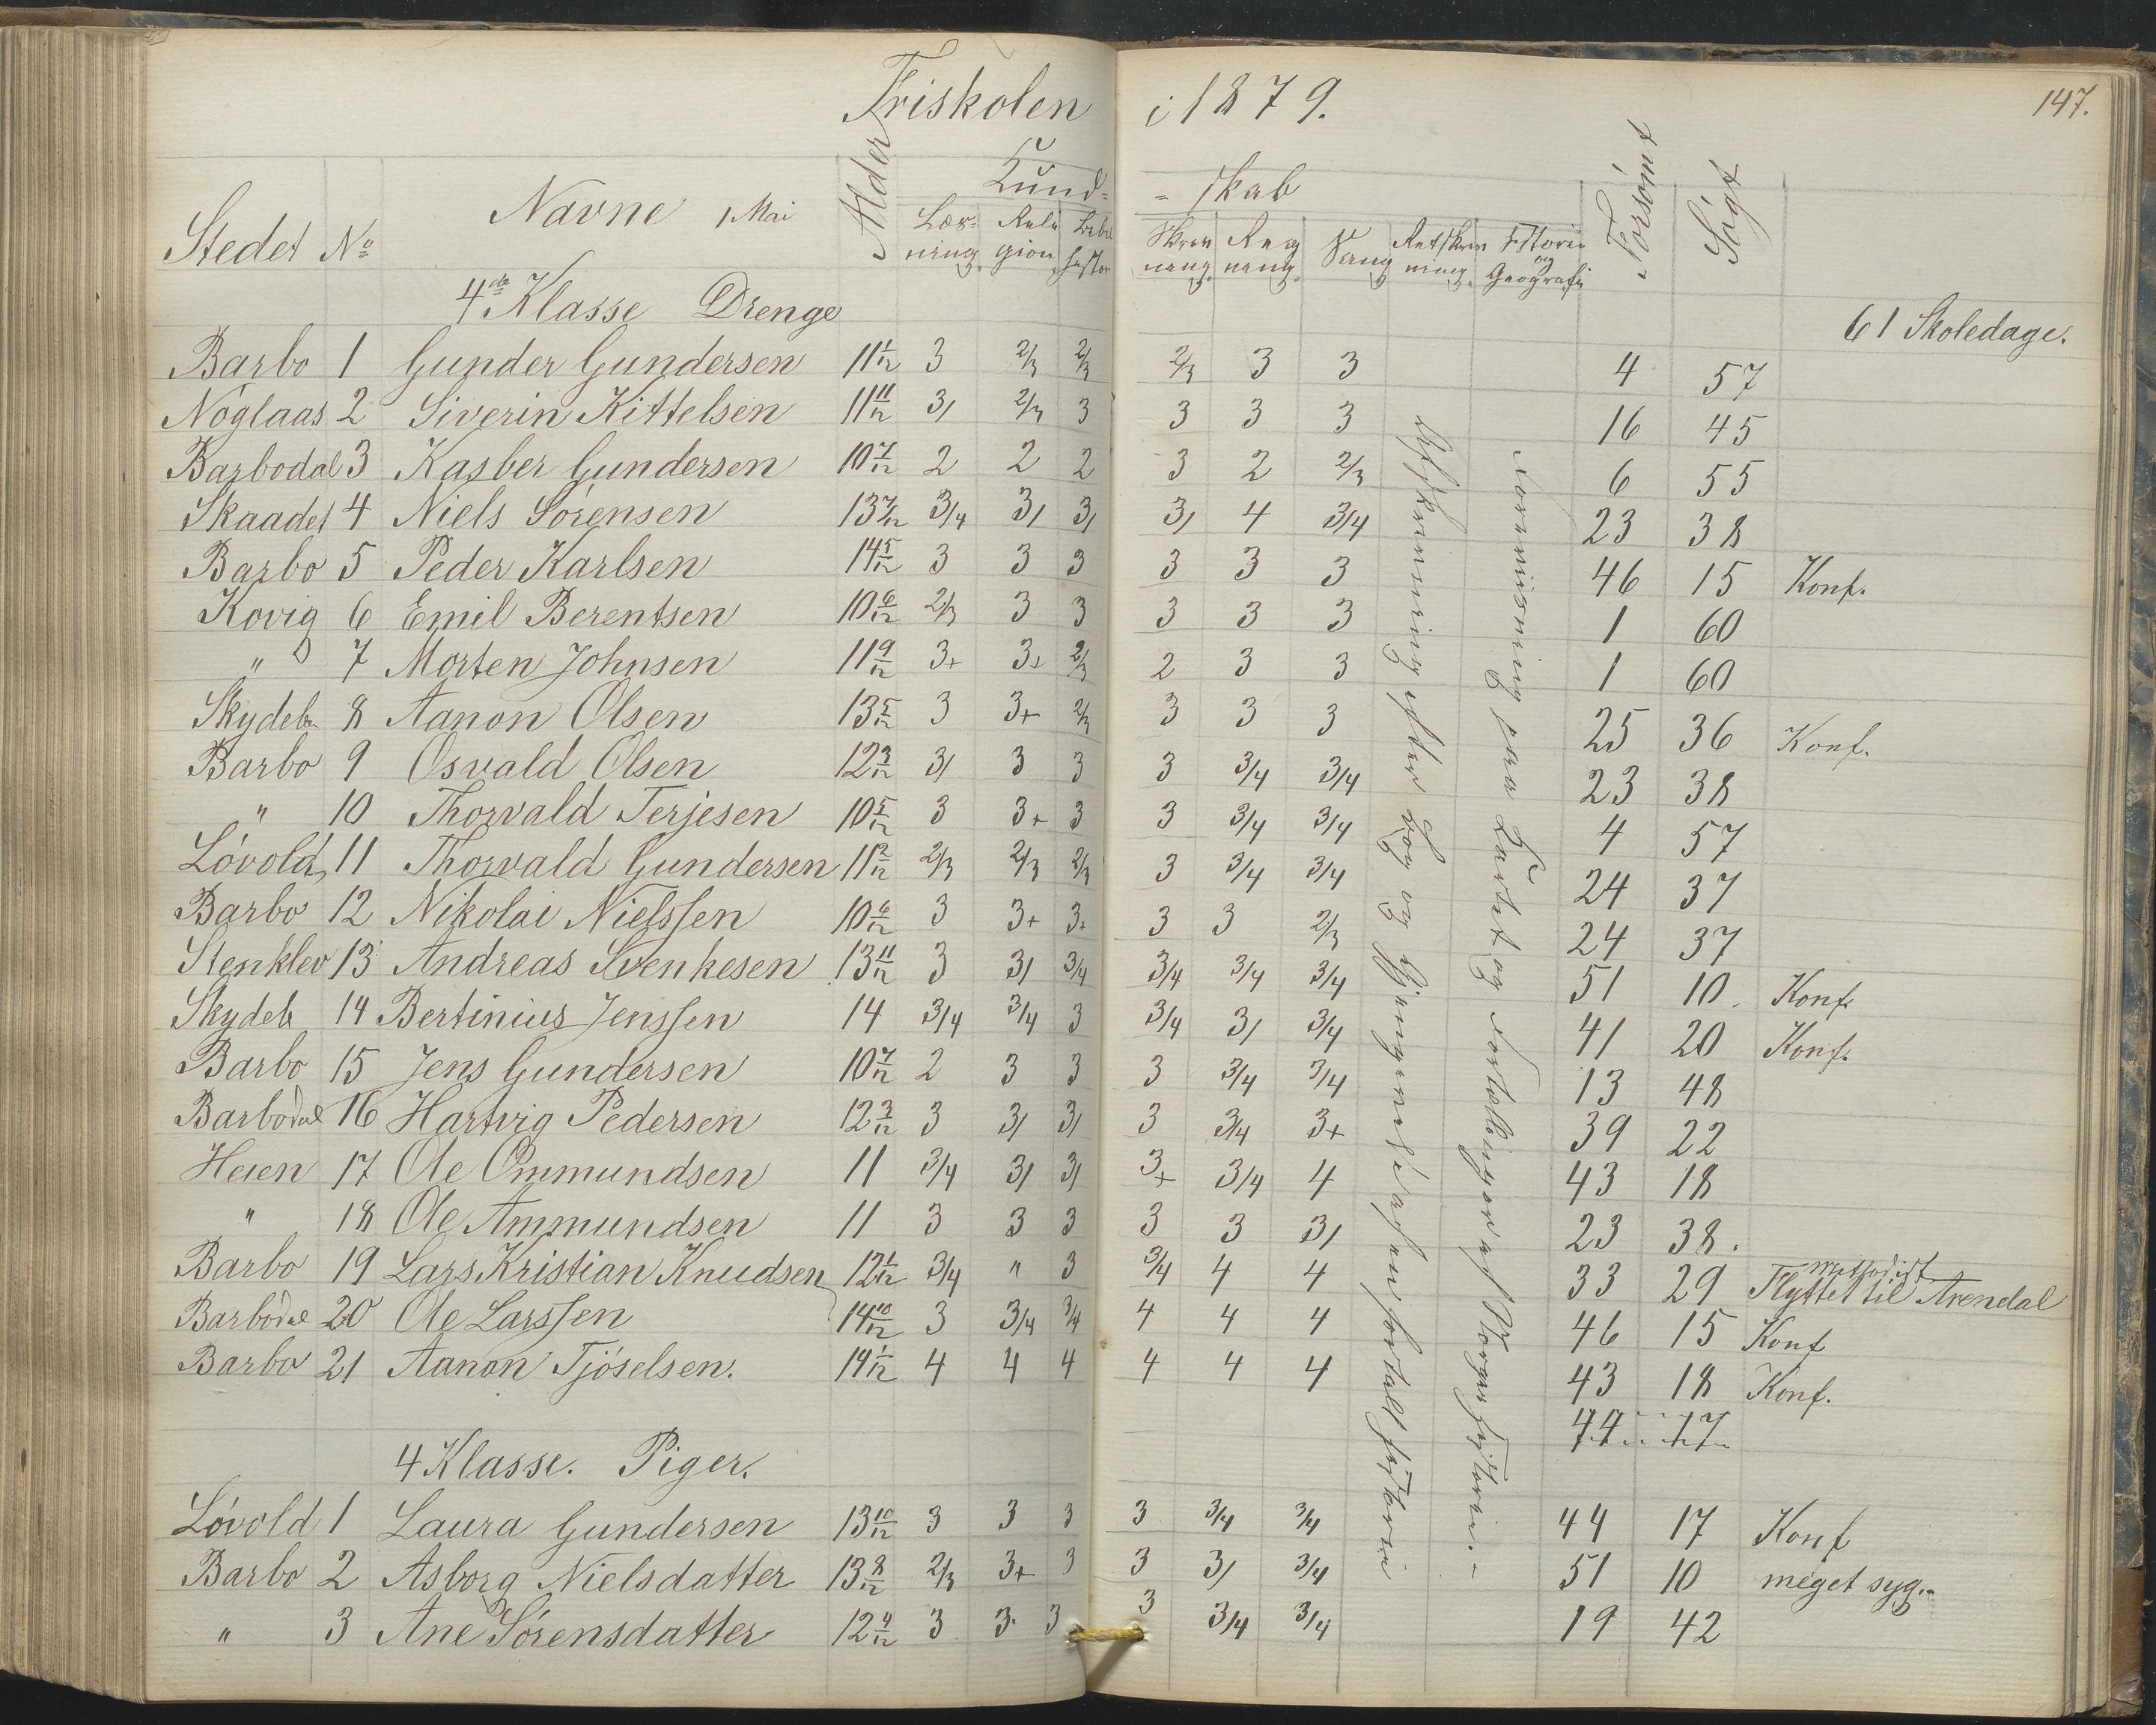 Friskolen i 1879. 147.
Stedet No Navne 1 Mai Alder Kund- -skab Forsømt Søgt
Læs- ning. Reli gion Bibel histor Skriv ning. Reg ning Sang Retskriv ning. Historie og Geografi
4de Klasse Drenge 61 Skoledage.
Barbo 1 Gunder Gundersen 11 1/12 3 2/3 2/3 2/3 3 3 4 57
Nøglaas 2 Siverin Kittelsen 11 11/12 3/ 2/3 3 3 3 3 16 45
Barbodal 3 Kasber Gundersen 10 7/12 2 2 2 3 2 2/3 6 55
Skaadet 4 Niels Sørensen 13 7/12 3/4 3/ 3/ 3/ 4 3/4 23 38
Barbo 5 Peder Karlsen 14 5/12 3 3 3 3 3 3 46 15 Konf.
Kovig 6 Emil Berentsen 10 6/12 2/3 3 3 3 3 3 1 60
" 7 Morten Johnsen 11 9/12 3+ 3+ 2/3 2 3 3 1 60
Skydeb 8 Aanon Olsen 13 5/12 3 3+ 2/3 3 3 3 25 36 Konf.
Barbo 9 Osvald Olsen 12 3/12 3/ 3 3 3 3/4 3/4 23 38
" 10 Thorvald Terjesen 10 5/12 3 3+ 3 3 3/4 3/4 4 57
Løvold 11 Thorvald Gundersen 11 2/12 2/3 2/3 2/3 3 3/4 3/4 24 37
Barbo 12 Nikolai Nielssen 10 6/12 3 3+ 3+ 3 3 2/3 24 37
Stenklev 13 Andreas Svenkesen 13 11/12 3 3/ 3/4 3/4 3/4 3/4 51 10. Konf.
Skydeb 14 Bertinius Jenssen 14 3/4 3/4 3 3/4 3/ 3/4 41 20 Konf.
Barbo 15 Jens Gundersen 10 7/12 2 3 3 3 3/4 3/4 13 48
Barbodal 16 Hartvig Pedersen 12 3/12 3 3/ 3/ 3 3/4 3+ 39 22
Heien 17 Ole Ommundsen 11 3/4 3/ 3/ 3+ 3/4 4 43 18
" 18 Ole Ammundsen 11 3 3 3 3 3 3/ 23 38.
Barbo 19 Lars Kristian Knudsen 12 1/12 3/4 " 3 3/4 4 4 33 29 Methodist Flyttet til Arendal
Barbodal 20 Ole Larssen 14 10/12 3 3/4 3/4 4 4 4 46 15 Konf
Barbo 21 Aanon Tjøselsen. 14 1/12 4 4 4 4 4 4 43 18 Konf.
44 17
4 Klasse. Piger.
Løvold 1 Laura Gundersen 13 10/12 3 3 3 3 3/4 3/4 44 17 Konf
Barbo 2 Asborg Nielsdatter 13 8/12 2/3 3+ 3 3 3/ 3/4 51 10 meget syg.
" 3 Ane Sørensdatter 12 4/12 3 3 3 3 3/4 3/4 19 42
Afskrivning efter Bog og
Forevisning paa Kartet og Fortællinger af Norges Historie.